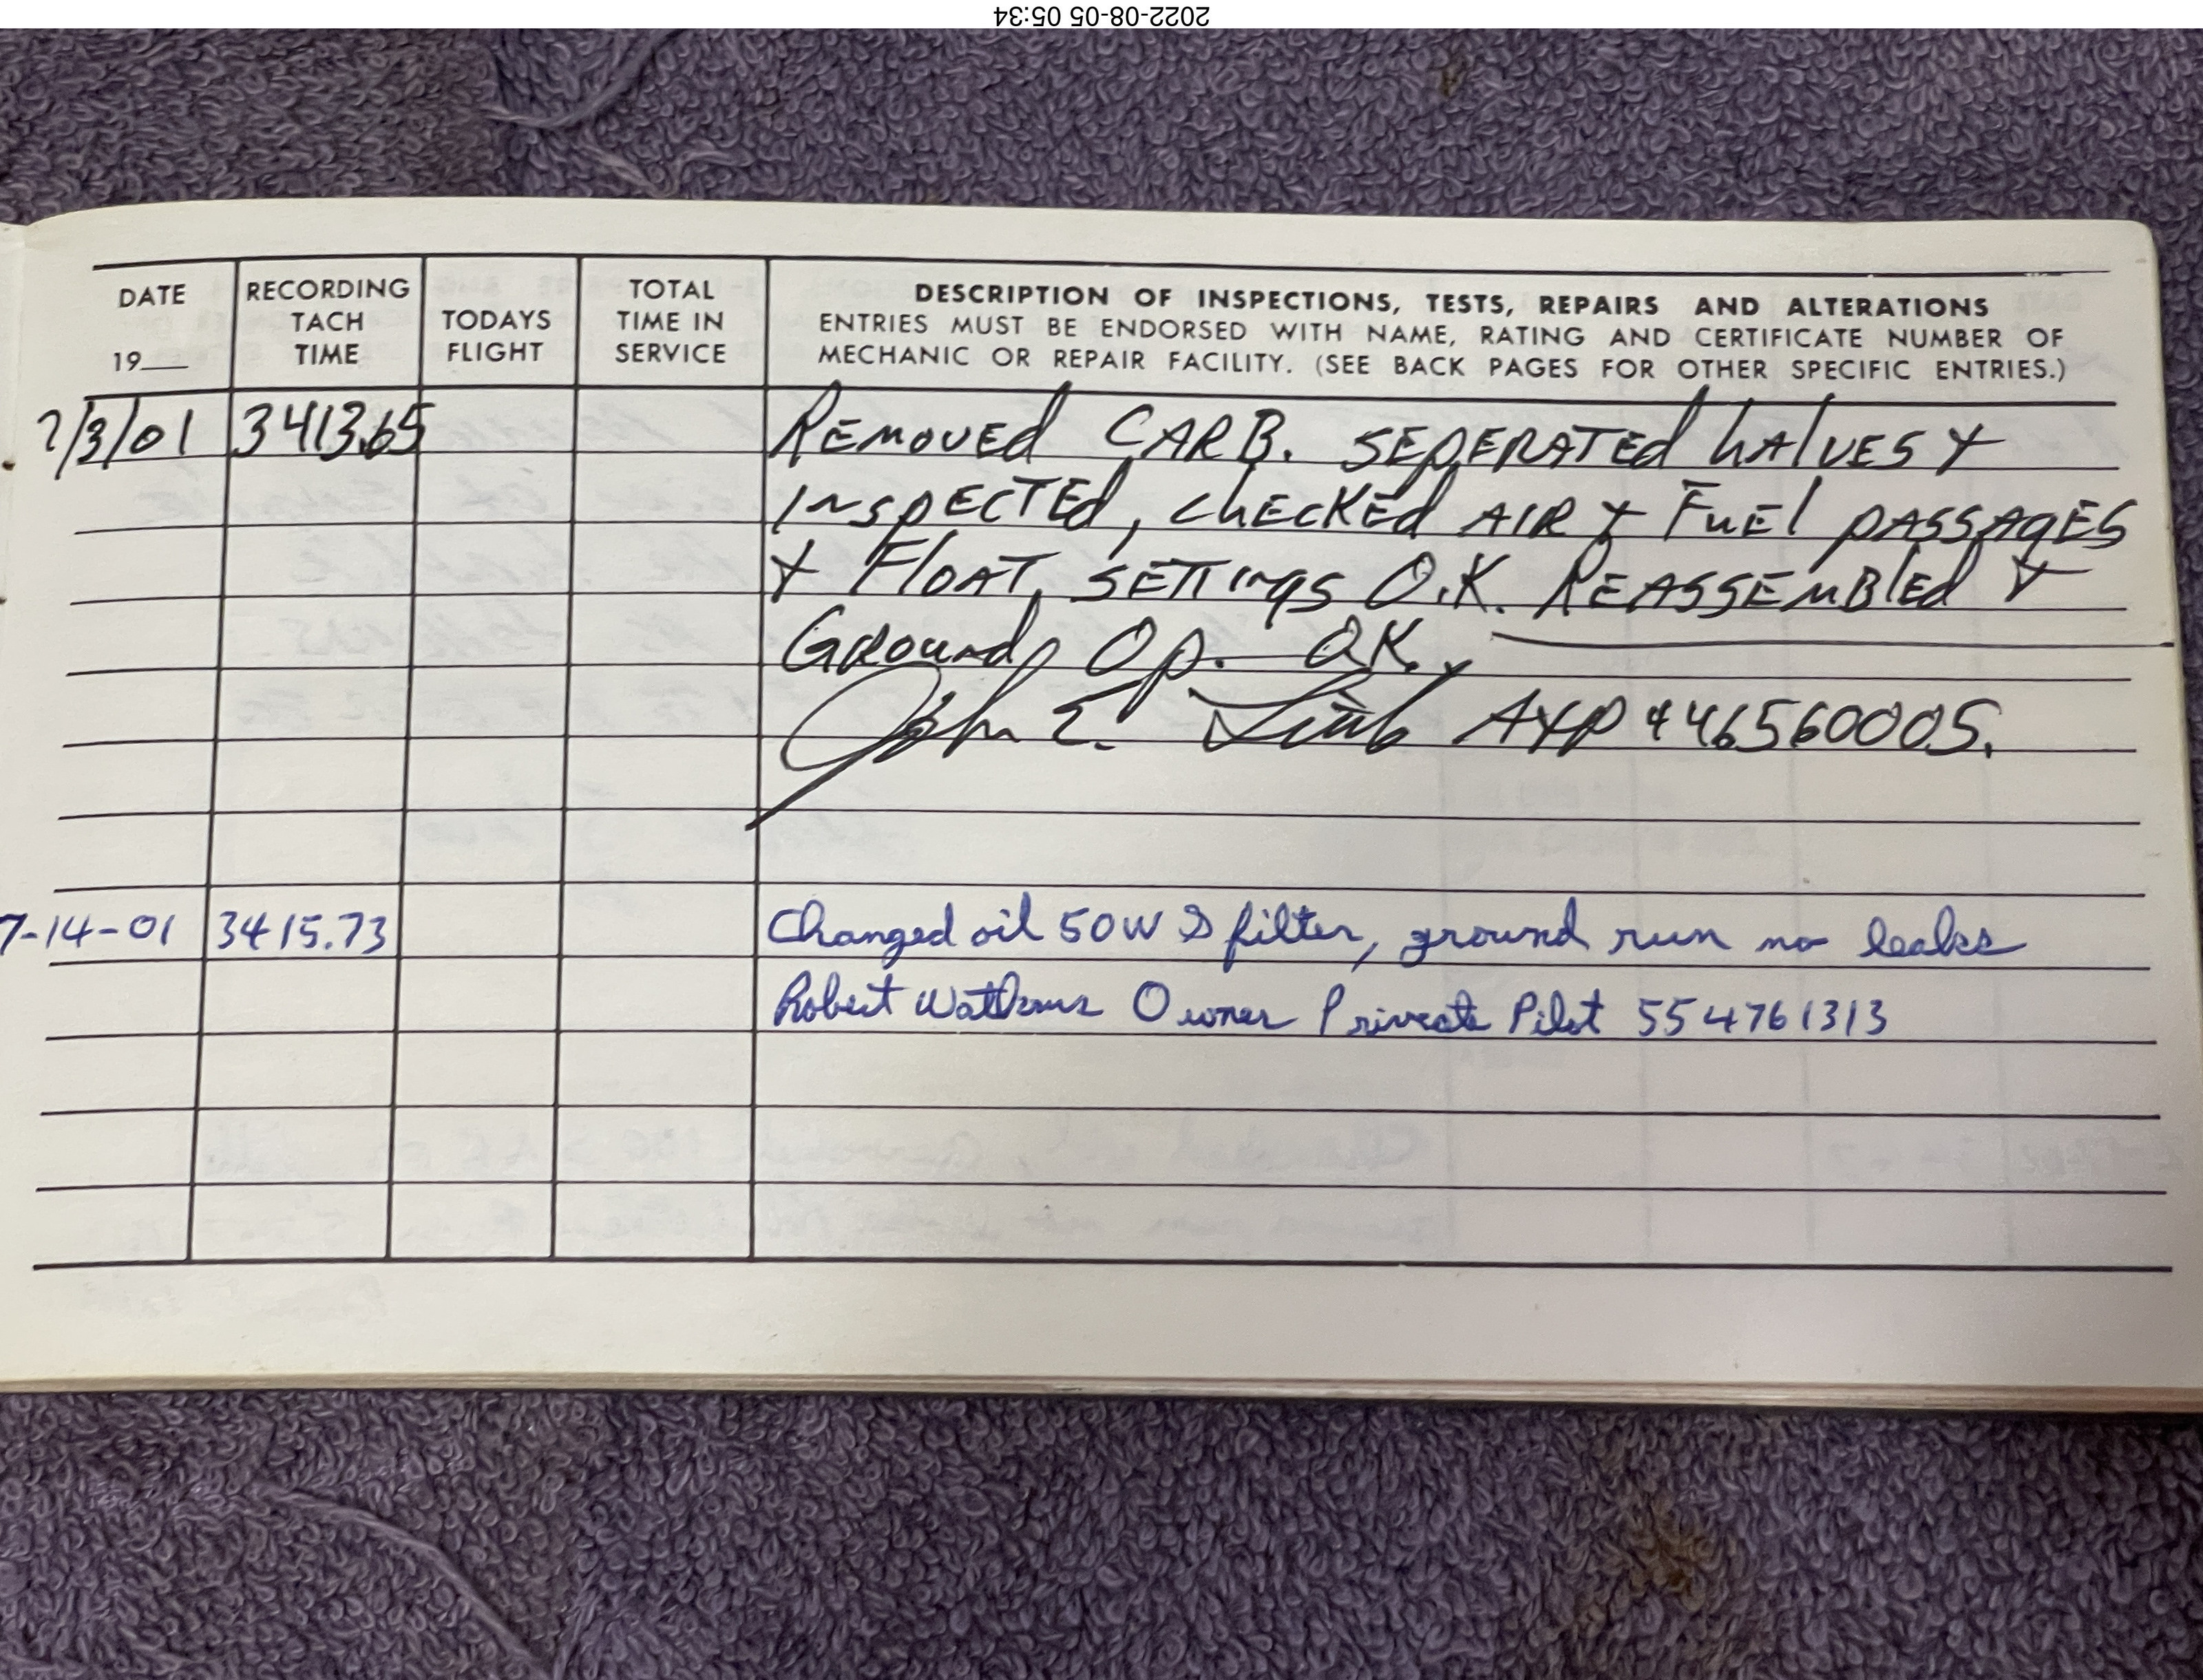 2022-08-05 05:34
DATE
19
RECORDING
TACH
TIME
TODAYS
FLIGHT
TOTAL
TIME IN
SERVICE
DESCRIPTION OF INSPECTIONS, TESTS, REPAIRS AND ALTERATIONS
ENTRIES MUST BE ENDORSED WITH NAME, RATING AND CERTIFICATE NUMBER OF
MECHANIC OR REPAIR FACILITY. (SEE BACK PAGES FOR OTHER SPECIFIC ENTRIES.)
7/3/01 3413.65 REMOVED CARB. SEPERATED HALVES &
INSPECTED, CHECKED AIR & FUEL PASSAGES
& FLOAT SETTINGS O.K. REASSEMBLED &
GROUND OP. OK.
John E. A&P 446560005.
7-14-01 3415.73 Changed oil 50W & filter, ground run no leaks
Robert Watkins Owner Private Pilot 554761313